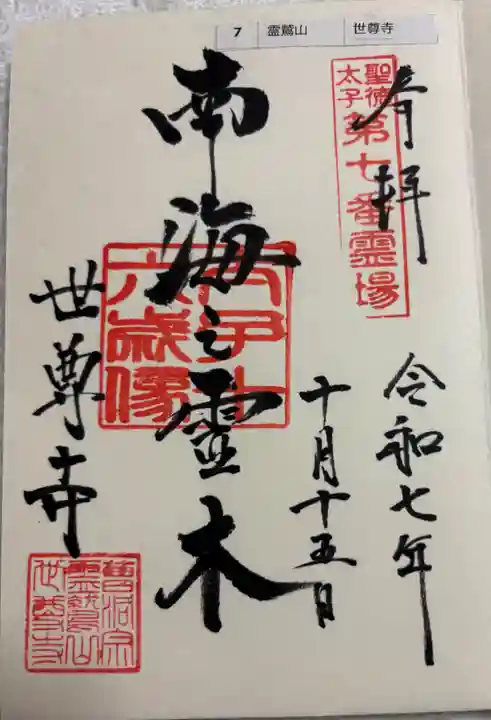 7 霊鷲山 世尊寺
奉拝
聖徳太子
第七番霊場
令和七年
十月十五日
南海之霊木
太子十六歳像
世尊寺
曹洞宗
霊鷲山
世尊寺